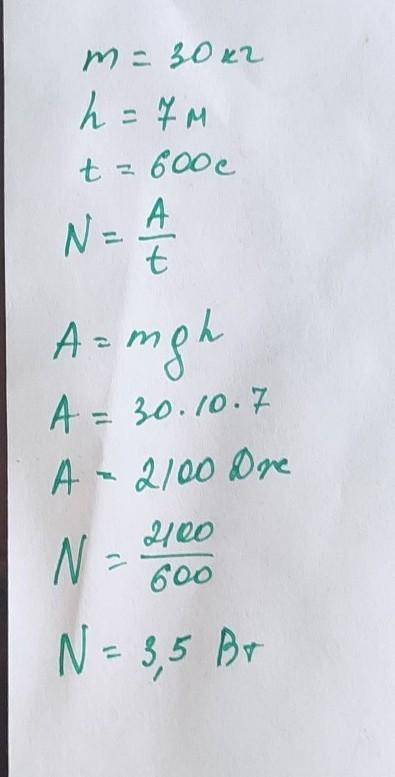 m = 30 кг
h = 7 м
t = 600 с
N = A/t
A = mgh
A = 30·10·7
A = 2100 Дж
N = 2100/600
N = 3,5 Вт